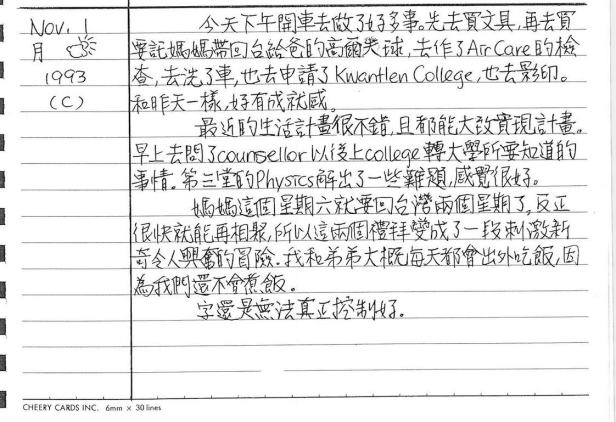 Nov. 1
月
1993
(C)
今天下午開車去做了好多事。先去買文具,再去買
要託媽媽帶回台給爸的高爾夫球,去作了Air Care的檢
查,去洗了車,也去申請了Kwantlen College,也去影印。
和昨天一樣,好有成就感。
最近的生活計畫很不錯,且都能大致實現計畫。
早上去問了counsellor以後上college轉大學所要知道的
事情。第三堂的Physics解出了一些難題,感覺很好。
媽媽這個星期六就要回台灣兩個星期了,反正
很快就能再相聚,所以這兩個禮拜變成了一段刺激新
奇令人興奮的冒險。我和弟弟大概每天都會出外吃飯,因
為我們還不會煮飯。
字還是無法真正控制好。
CHEERY CARDS INC. 6mm × 30 lines